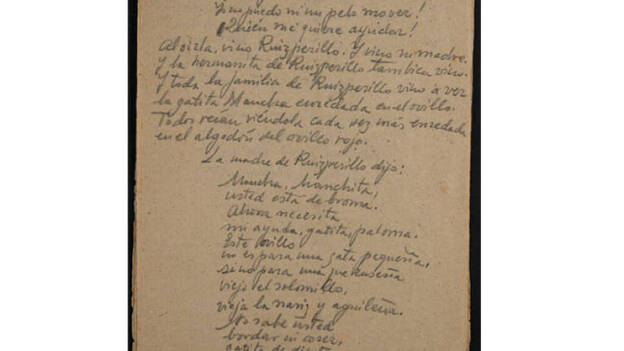 ¡No puedo ni un pelo mover!
¡Quién me quiere ayudar!
Al oirla, vino Ruizperillo. Y vino su madre.
Y la hermanita de Ruizperillo tambien vino.
Y toda la familia de Ruizperillo vino a ver
la gatita Mancha enredada en el ovillo.
Todos reian viendola cada vez más enredada
en el algodón del ovillo rojo.
La madre de Ruizperillo dijo:
Mancha, Manchita,
usted está de broma.
Ahora necesita
mi ayuda, gatita, paloma.
Este ovillo
no es para una gata pequeña,
sino para una que enseña
viejo el colmillo,
vieja la nariz y aguileña.
No sabe usted
bordar ni coser,
gatita de